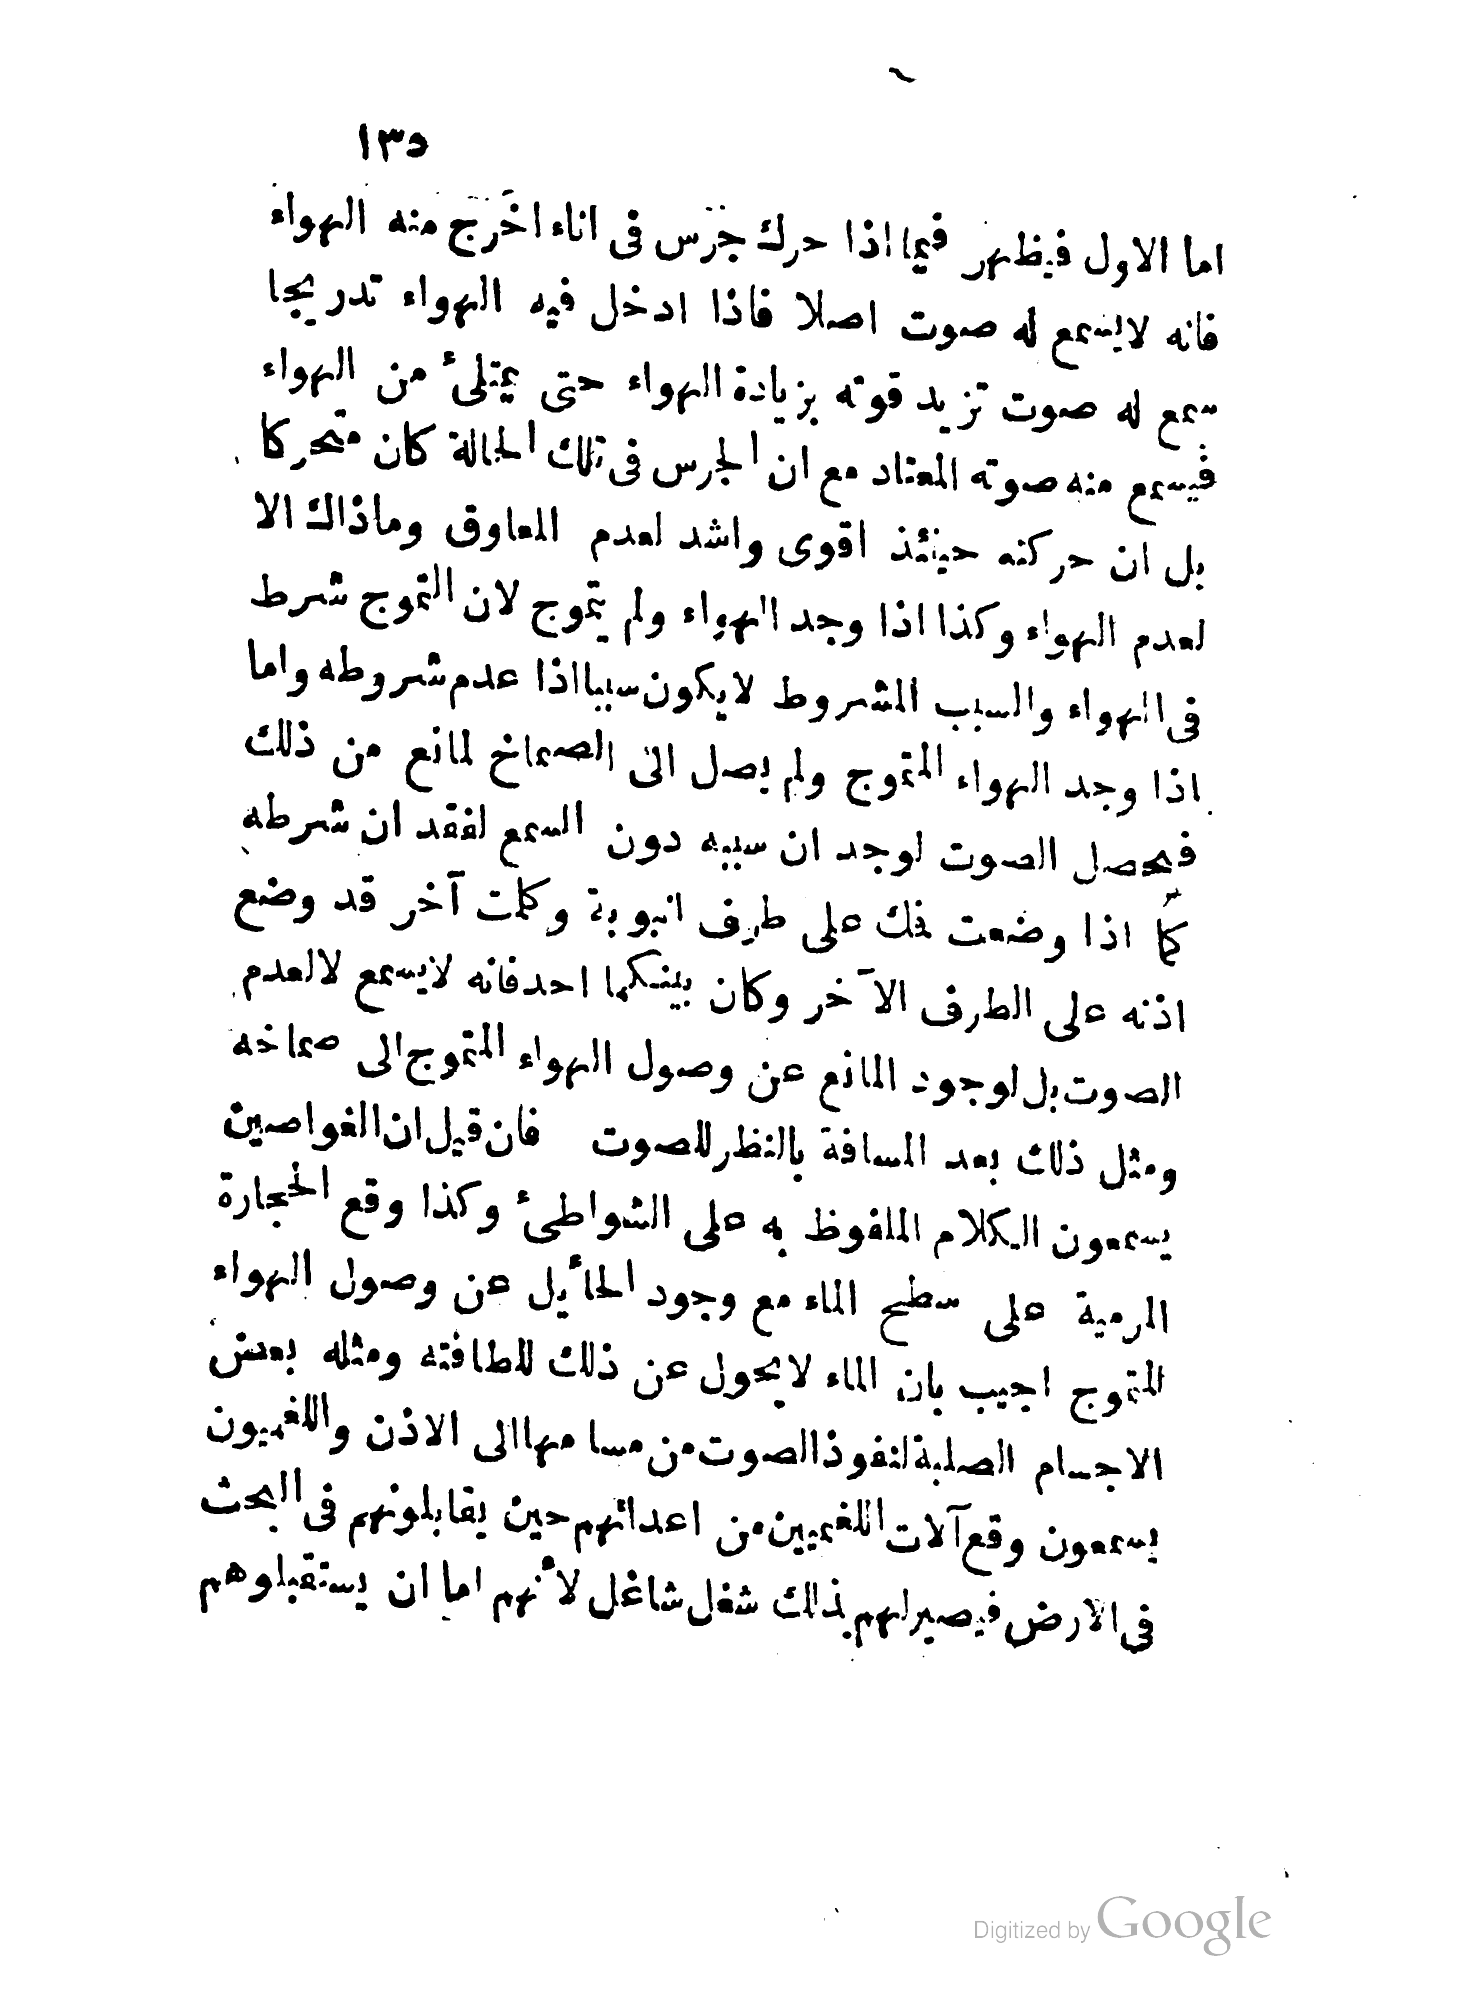 ١٣٥
اما الاول فيظهر فيما اذا حرك جرس فى اناء اخرج منه الهواء
فانه لايسمع له صوت اصلا فاذا ادخل فيه الهواء تدريجا
سمع له صوت تزيد قوته بزيادة الهواء حتى يمتلئ من الهواء
فيسمع منه صوته المعتاد مع ان الجرس فى تلك الحالة كان متحركا
بل ان حركته حينئذ اقوى واشد لعدم المعاوق وماذاك الا
لعدم الهواء وكذا اذا وجد الهواء ولم يتموج لان التموج شرط
فى الهواء والسبب المشروط لايكون سببا اذا عدم شروطه واما
اذا وجد الهواء المتموج ولم يصل الى الصماخ لمانع من ذلك
فيحصل الصوت لوجد ان سببه دون السمع لفقد ان شرطه
كما اذا وضعت فمك على طرف انبوبة وكلمت آخر قد وضع
اذنه على الطرف الآخر وكان بينكما احد فانه لايسمع لا لعدم
الصوت بل لوجود المانع عن وصول الهواء المتموج الى صماخه
ومثل ذلك بعد المسافة بالنظر للصوت فان قيل ان الغواصين
يسمعون الكلام الملفوظ به على الشواطئ وكذا وقع الحجارة
المرمية على سطح الماء مع وجود الحأيل عن وصول الهواء
المتموج اجيب بان الماء لايحول عن ذلك للطافته ومثله بعض
الاجسام الصلبة لنفوذ الصوت من مسامها الى الاذن واللغميون
يسمعون وقع آلات اللغميين من اعدائهم حين يقابلونهم فى البحث
فى الارض فيصير لهم بذلك شغل شاغل لأنهم اما ان يستقبلوهم
Digitized by Google